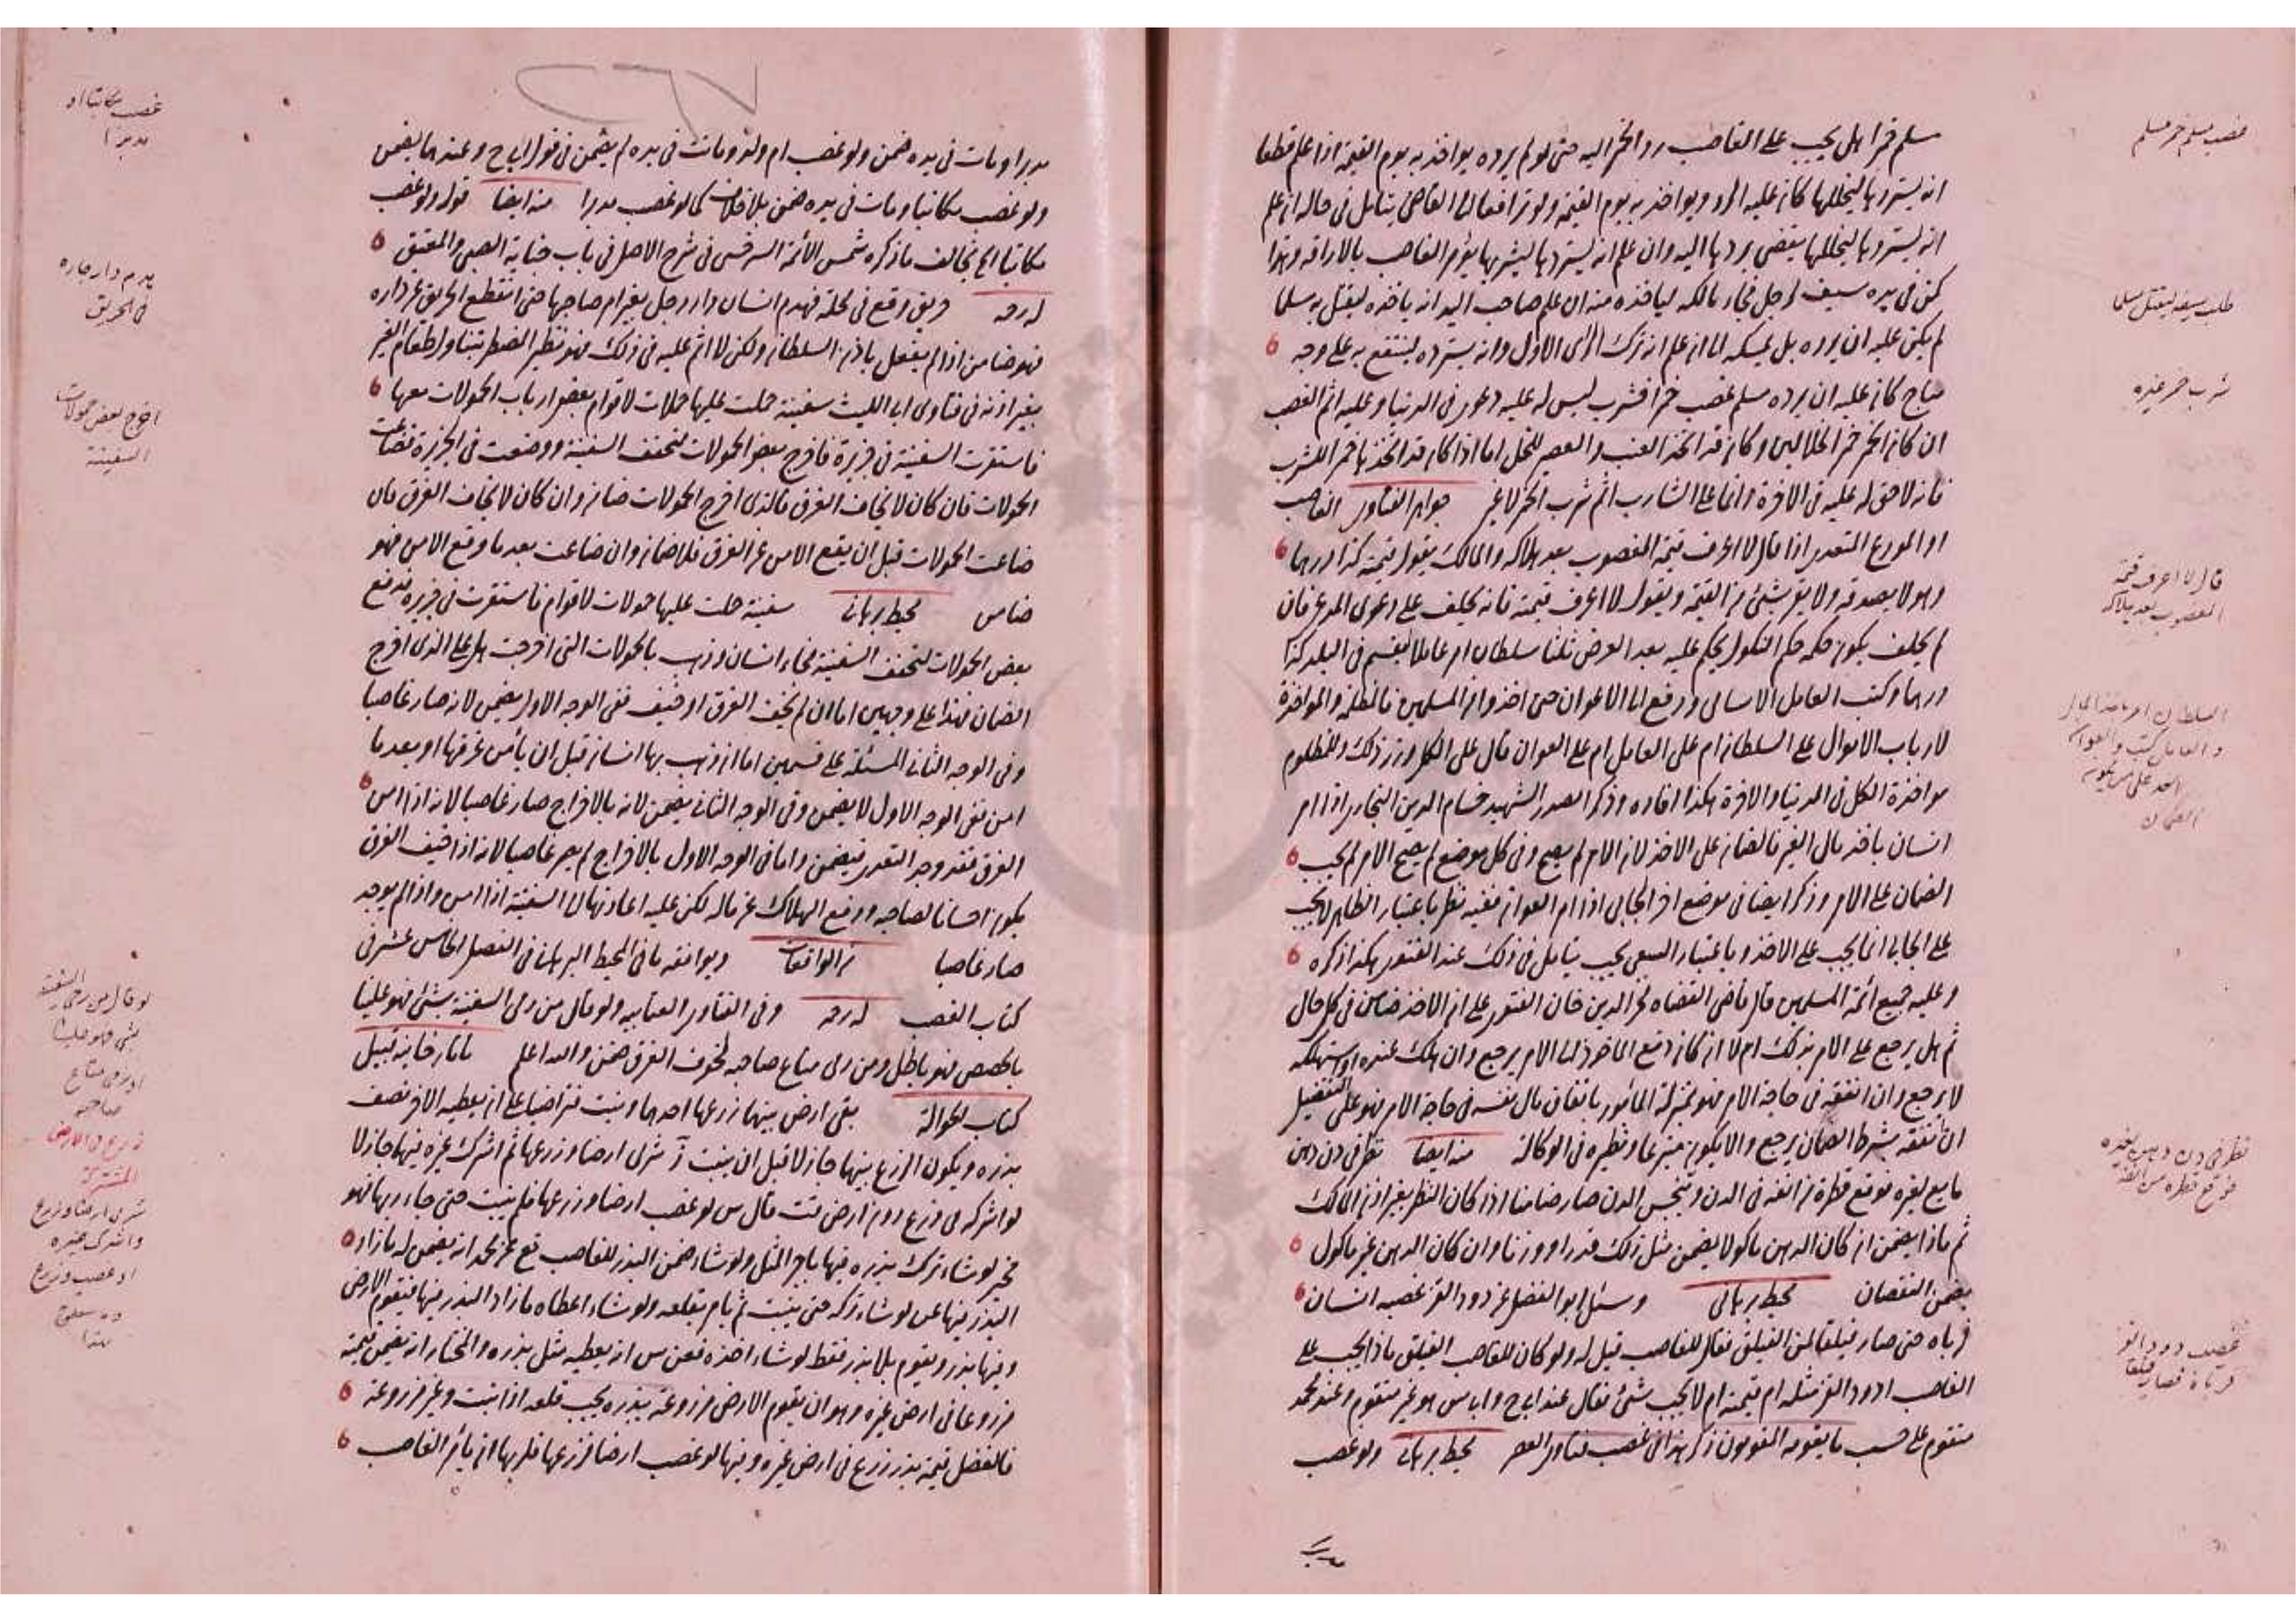 مسلم خمرا هل يجب على الغاصب رد الخمر اليه حتى لو لم يرده يواخذ به يوم القيمة اذا علم قطعا
انه يستردها ليخللها كان عليه الرد ويواخذ به يوم القيمة ولو ترافعا الى القاضي يتامل في حاله ان علم
انه يستردها ليخللها يقضي بردها اليه وان علم انه يستردها ليشربها يؤمر الغاصب بالاراقة وهذا
كمن في يده سيف لرجل فجاء مالكه لياخذه منه ان علم صاحب اليد انه ياخذه ليقتل به مسلما
لم يكن عليه ان يرده بل يمسكه الى ان علم انه ترك الرأى الاول وانه يسترده لينتفع به على وجه
مباح كان عليه ان يرده مسلم غصب خمرا فشرب ليس له عليه دعوى في الدنيا وعليه اثم الغصب
ان كان الخمر خمر الخلالين وكان قد اتخذ العنب والعصير للخل اما اذا كان قد اتخذها خمرا للشرب
فانه لا حق له عليه في الاخرة وانما على الشارب اثم شرب الخمر لا غير جواهر الفتاوى الغاصب
او المودع المتعدى اذا قال لا اعرف قيمة المغصوب بعد هلاكه والمالك يقول قيمته كذا درهما
وهو لا يصدقه ولا يقر بشئ من القيمة ويقول لا اعرف قيمته فانه يحلف على دعوى المدعي فان
لم يحلف يكون حكمه حكم النكول يحكم عليه بعد العرض ثلثا سلطان امر عاملا يقسم في البلد كذا
درهما وكتب العامل الاسامى ودفع الى الاعوان حتى اخذوا من المسلمين فالمظلمة والمواخذة
لارباب الاموال على السلطان ام على العامل ام على العوان قال على الكل وزر ذلك وللمظلوم
مواخذة الكل في الدنيا والاخرة هكذا افاده وذكر الصدر الشهيد حسام الدين البخارى اذا امر
انسان باخذ مال الغير فالضمان على الاخذ لان الامر لم يصح وفي كل موضع لم يصح الامر لم يجب
الضمان على الامر وذكر ايضا في موضع اخر الجابى اذا امر العوان ففيه نظر باعتبار الظاهر لا يجب
على الجابى انما يجب على الاخذ وباعتبار السعي يجب يتامل في ذلك عند الفتوى هكذا ذكره
وعليه جميع ائمة المسلمين قال قاضي القضاة فخر الدين خان الفتوى على ان الاخذ ضامن في كل حال
ثم هل يرجع على الامر بذلك ام لا ان كان دفع الماخوذ الى الامر يرجع وان هلك عنده او استهلكه
لا يرجع وان انفقه في حاجة الامر فهو بمنزلة المأمور بانفاق مال نفسه في حاجة الامر فهو على التفصيل
ان انفقه بشرط الضمان يرجع والا يكون متبرعا ونظيره في الوكالة منه ايضا نظر في دن دهن
مايع لغيره فوقع قطرة من انفه في الدن وتنجس الدن صار ضامنا اذا كان النظر بغير اذن المالك
ثم ماذا يضمن ان كان الدهن ماكولا يضمن مثل ذلك قدرا ووزنا وان كان الدهن غير ماكول
يضمن النقصان محيط برهاني وسئل ابو الفضل عن دود القز غصبه انسان
فرباه حتى صار فيلقا لمن الفيلق فقال للغاصب قيل له ولو كان للغاصب الفيلق ماذا يجب على
الغاصب ا دود القز مثله ام قيمته ام لا يجب شئ فقال عند ابي ح وابي س هو غير متقوم وعند محمد
متقوم على حسب ما يقومه المقومون ذكر هذا في غصب فتاوى العصر محيط برهانى ولو غصب
غصب مسلم خمر مسلم
طلب سيفه ليقتل مسلما
شرب خمر غيره
قال لا اعرف قيمة
المغصوب بعد هلاكه
السلطان امر باخذ المال
الضمان
نظر في دن دهن لغيره
فوقع قطرة من انفه
غصب دود القز
فرباه فصار فيلقا
مدبرا ومات في يده ضمن ولو غصب ام ولد وماتت في يده لم يضمن في قول ابي ح وعندهما يضمن
ولو غصب مكاتبا ومات في يده ضمن بلا خلاف كما لو غصب مدبرا منه ايضا قوله ولو غصب
مكاتبا الخ يخالف ما ذكره شمس الأئمة السرخسى في شرح الاصل في باب جناية الصبي والمعتق
لمرحمه حريق وقع في محلة فهدم انسان دار رجل بغير امر صاحبها حتى انقطع الحريق عن داره
فهو ضامن اذا لم يفعل باذن السلطان ولكن لا اثم عليه في ذلك فهو نظير المضطر يتناول طعام الغير
بغير اذنه في فتاوى ابى الليث سفينة حملت عليها حملات لاقوام بعض ارباب الحمولات معها
فاستقرت السفينة في جزيرة فاخرج بعض الحمولات لتخفف السفينة ووضعت في الجزيرة فضاعت
الحمولات فان كان لا يخاف الغرق فالذى اخرج الحمولات ضامن وان كان يخاف الغرق فان
ضاعت الحمولات قبل ان يقع الامن عن الغرق فلا ضمان وان ضاعت بعد ما وقع الامن فهو
ضامن محيط برهانى سفينة حملت عليها حمولات لاقوام فاستقرت في جزيره فدفع
بعض الحمولات لتخفف السفينة فجاء انسان وذهب بالحمولات التى اخرجت هل على الذى اخرج
الضمان فهذا على وجهين اما ان لم يخف الغرق او خيف ففى الوجه الاول يضمن لانه صار غاصبا
وفى الوجه الثانى المسئلة على قسمين اما ان ذهب بها انسان قبل ان يأمن غرقها او بعد ما
امن ففى الوجه الاول لا يضمن وفى الوجه الثانى يضمن لانه بالاخراج صار غاصبا لانه اذا امن
الغرق فقد وجد التعدى فيضمن واما في الوجه الاول بالاخراج لم يصر غاصبا لانه اذا خيف الغرق
يكون احسانا لصاحبه ودفع الهلاك عن ماله لكن عليه اعادتها الى السفينة اذا امن واذا لم يوجد
صار غاصبا من الواقعات ويوافقه ما في المحيط البرهانى في الفصل الخامس عشر في
كتاب الغصب لمرحمه وفي الفتاوى العتابيه ولو قال من رمى السفينة بشئ فهو علينا
بالحصص فهو باطل ومن رمى متاع صاحبه لخوف الغرق ضمن والله اعلم تاتارخانيه قبيل
كتاب الحوالة بقى ارض بينهما زرعها احدهما ونبت فتراضيا على ان يعطيه الاخر نصف
بذره ويكون الزرع بينهما جاز لا قبل ان ينبت شرى ارضا وزرعها ثم اشرك غيره فيها جاز لا
لو اشركه في زرع دون ارض قال س لو غصب ارضا وزرعها فلم ينبت حتى جاء ربها فهو
مخير لو شاء ترك بذره فيها باجر المثل ولو شاء ضمن البذر للغاصب مع عن محمد انه يضمن له ما زاد
البذر فيها عن لو شاء تركه حتى ينبت ثم يأمر بقلعه ولو شاء اعطاه ما زاد البذر فيها فتقوم الارض
وفيها بذر وتقوم بلا بذر فقط لو شاء اخذه فعن س انه يعطيه مثل بذره والمختار انه يضمن قيمته
مزروعا في ارض غيره وهو ان يقوم الارض مزروعة ببذره يجب قلعه اذا نبت وغير مزروعة
فالفضل قيمة بذر زرع في ارض غيره وفيها لو غصب ارضا فزرعها فلربها ان يأمر الغاصب
غصب مكاتبا او
مدبرا
هدم دار جاره
في الحريق
اخرج بعض حمولات
السفينة
لو قال من رمى السفينة
بشئ فهو علينا
او رمى متاع
صاحبه
زرع في الارض
المشتركة
شرى ارضا وزرع
واشرك غيره
او غصب وزرع